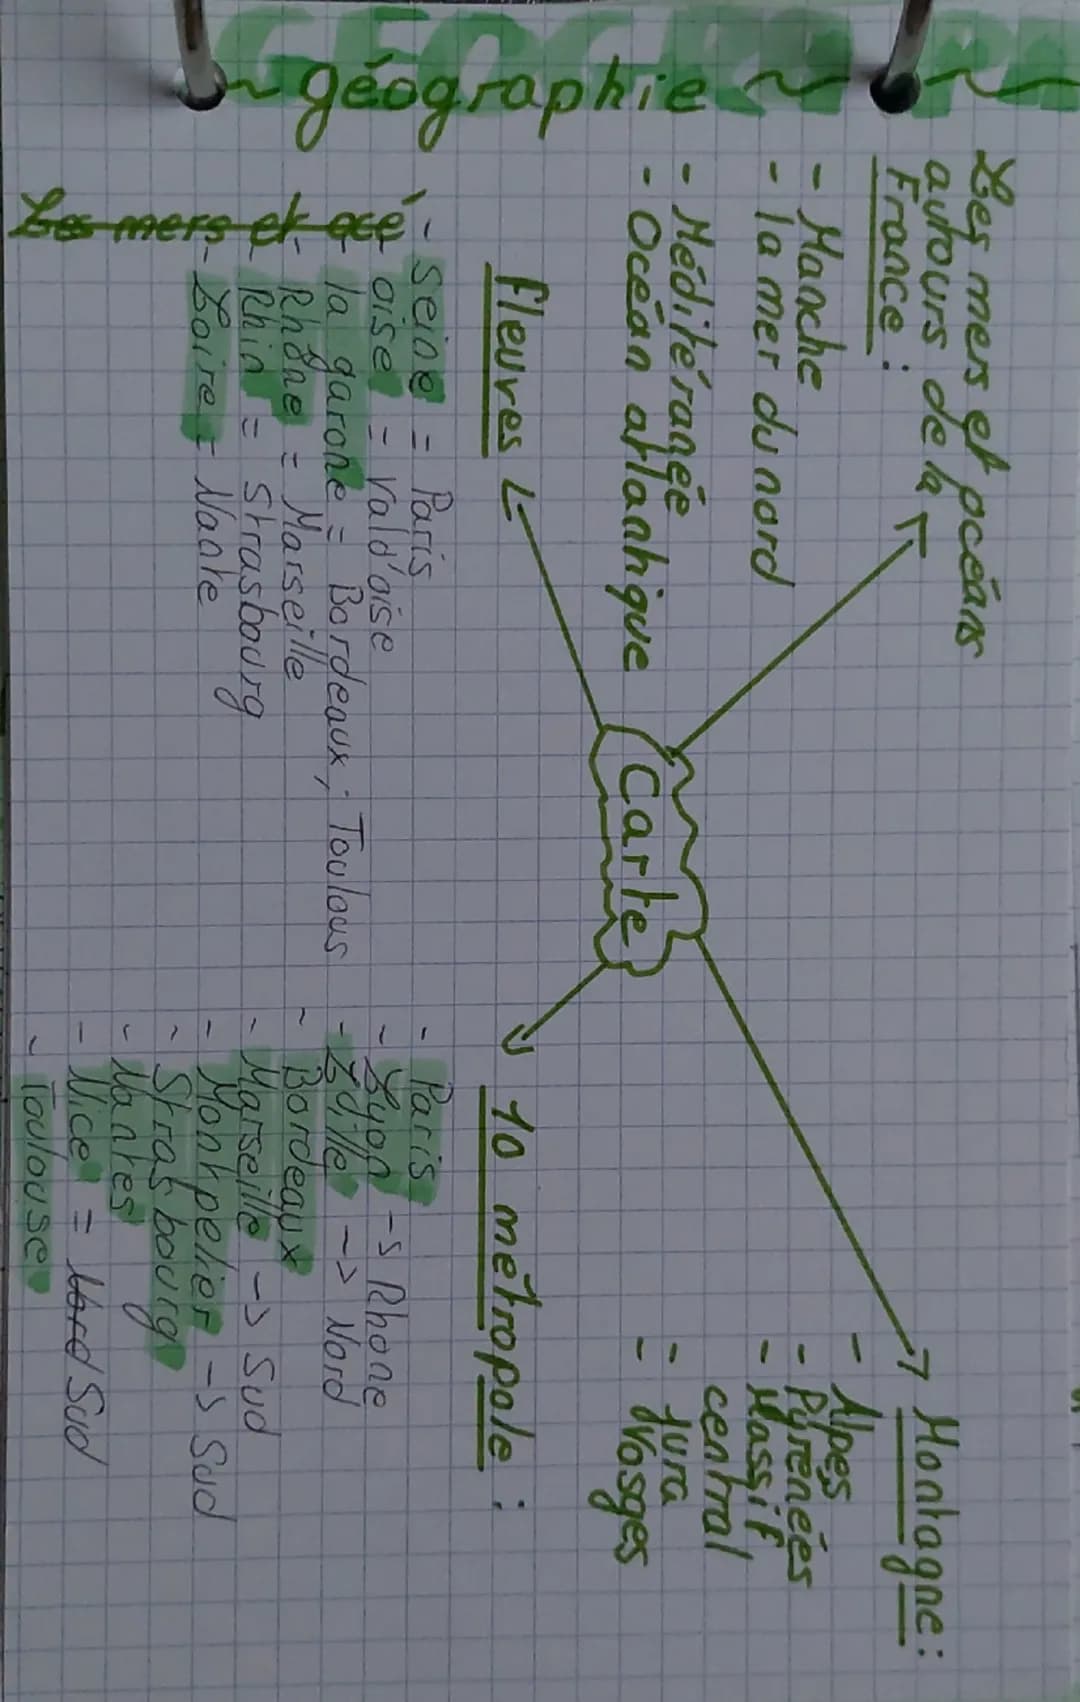 GEOGRAPH
~ géographie ~ ~
Les mers et océans
autours de la
France :
- Manche
- la mer du nord
- Méditéranée
- Océan atlantique
Carte
Montagne :
- Alpes
- Pyrenées
- Massif
central
- Jura
- Vosges
fleuves
- Seine = Paris
- oise = Val d'oise
- la garone = Bordeaux, Toulous
- Rhône = Marseille
- Rhin = Strasbourg
- Loire = Nante
Les mers et océ
10 métropole :
- Paris
- Lyon -> Rhone
- Lille -> Nord
- Bordeaux
- Marseille -> Sud
- Montpelier -> Sud
- Strasbourg
- Nantes
- Nice = Nord Sud
- Toulouse